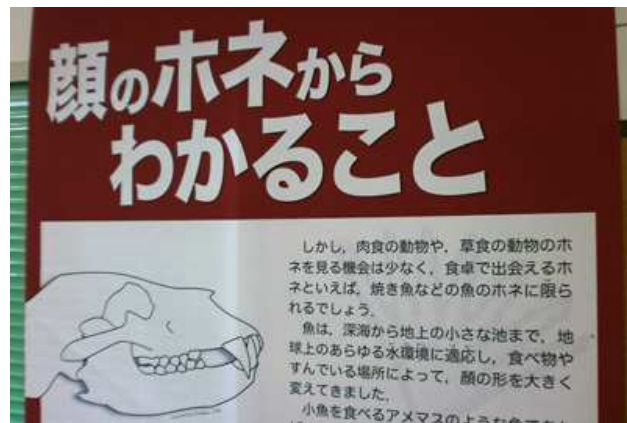 顔のホネから
わかること
しかし，肉食の動物や，草食の動物のホ
ネを見る機会は少なく，食卓で出会えるホ
ネといえば，焼き魚などの魚のホネに限ら
れるでしょう．
魚は，深海から地上の小さな池まで，地
球上のあらゆる水環境に適応し，食べ物や
すんでいる場所によって，顔の形を大きく
変えてきました．
小魚を食べるアメマスのような魚で